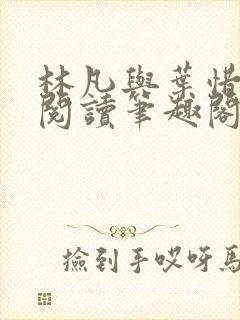 林凡與葉惜
閱讀筆趣閣
撿到手哎呀馬